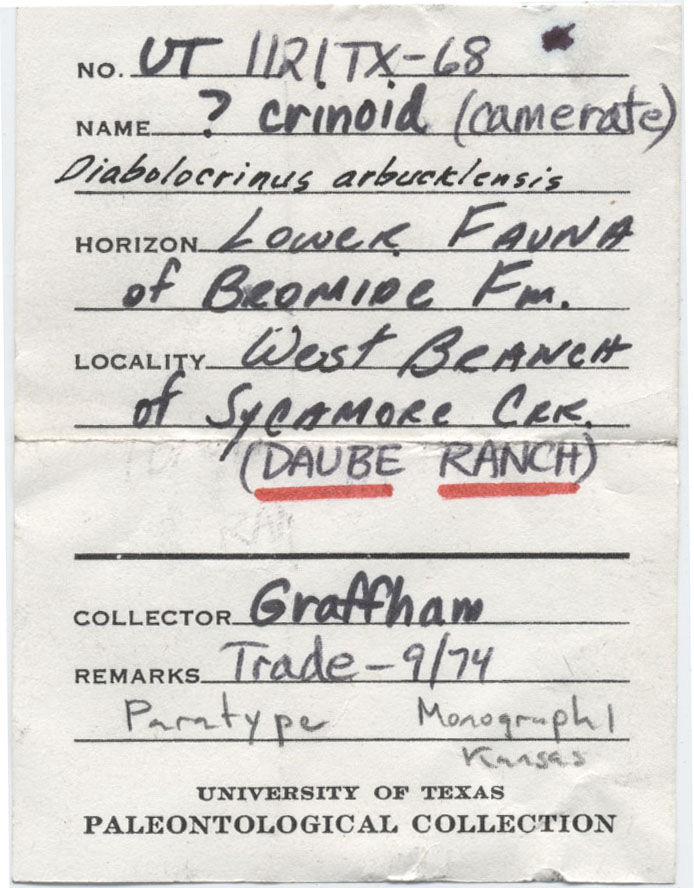 NO. UT 1121TX-68
NAME ? crinoid (camerate)
Diabolocrinus arbucklensis
HORIZON Lower Fauna
of Bromide Fm.
LOCALITY West Branch
of Sycamore Crk.
(DAUBE RANCH)
COLLECTOR Graffham
REMARKS Trade-9/74
Paratype Monograph 1
Kansas
UNIVERSITY OF TEXAS
PALEONTOLOGICAL COLLECTION